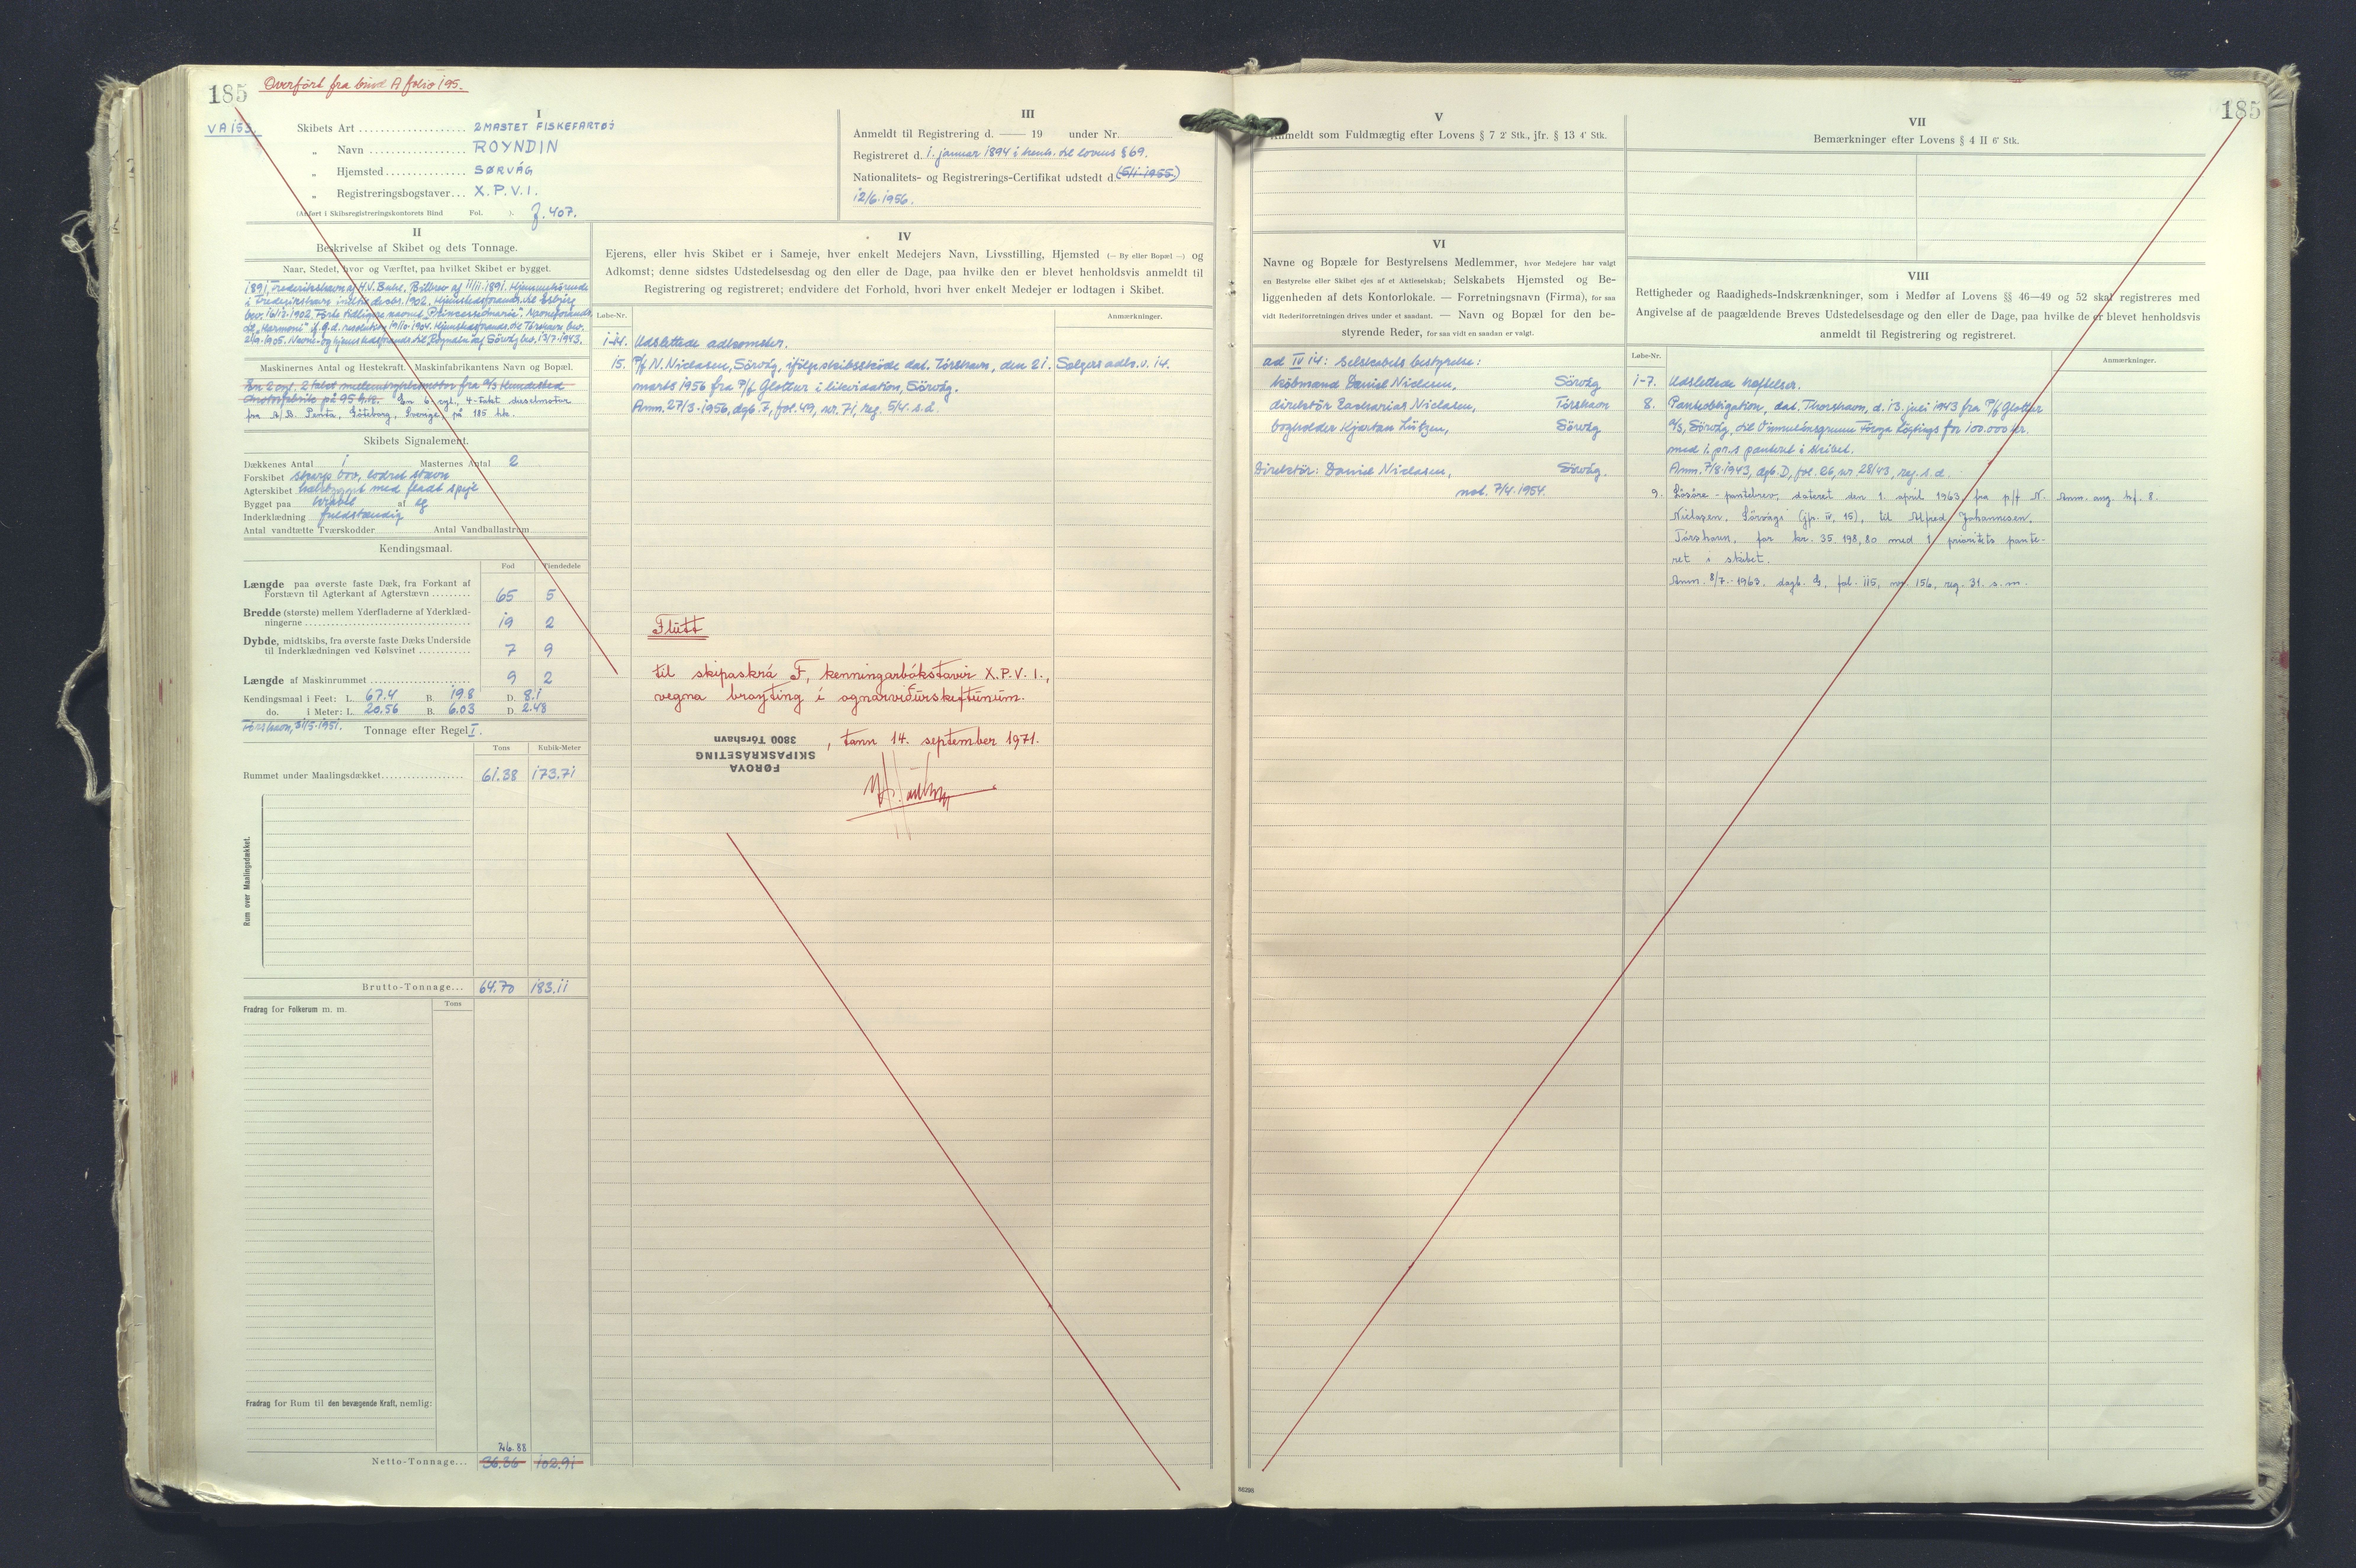 185 Overført fra bind A folio 195.
VA 153.
I
Skibets Art 2MASTET FISKEFARTØJ
„ Navn ROYNDIN
„ Hjemsted SØRVÁG
„ Registreringsbogstaver X.P.V.I.
(Anført i Skibsregistreringskontorets Bind Fol. ). J. 407.
II
Beskrivelse af Skibet og dets Tonnage.
Naar, Stedet, hvor og Værftet, paa hvilket Skibet er bygget.
1891, Frederikshavn af H.V. Buhl. Bilbrev af 11/11.1891. Hjemmehörende
i Frederikshavn indtil decbr. 1902. Hjemstedsforandr. til Esbjerg
bev. 16/12.1902. Førte tidligere navnet „Prinsesse Marie“. Navneforandr.
til „Harmoni“ if. g.d. resolution 19/10.1904. Hjemstedsforandr. til Tórshavn bev.
2/9.1905. Navne- og hjemstedsforandr. til „Royndin“ af Sörvág bev. 13/7.1943.
Maskinernes Antal og Hestekraft. Maskinfabrikantens Navn og Bopæl.
En 2 cyl. 2 takt mellemtryksmotor fra A/S Hundested
motorfabrik på 95 h.k. En 6 cyl., 4-takt dieselmotor
fra A/B. Penta, Göteborg, Sverige, på 185 hk.
Skibets Signalement.
Dækkenes Antal 1 Masternes Antal 2
Forskibet skarp bov, lodret stævn
Agterskibet hækbygget med fladt spejl
Bygget paa kravel af eg
Inderklædning fuldstændig
Antal vandtætte Tværskodder Antal Vandballastrum
Kendingsmaal.
Fod Tiendedele
Længde paa øverste faste Dæk, fra Forkant af
Forstævn til Agterkant af Agterstævn 65 5
Bredde (største) mellem Yderfladerne af Yderklæd-
ningerne 19 2
Dybde, midtskibs, fra øverste faste Dæks Underside
til Inderklædningen ved Kølsvinet 7 9
Længde af Maskinrummet 9 2
Kendingsmaal i Feet: L. 67.4 B. 19.8 D. 8.1
do. i Meter: L. 20.56 B. 6.03 D. 2.48
Tórshavn, 31/5.1951. Tonnage efter Regel I.
Tons Kubik-Meter
Rummet under Maalingsdækket 61.38 173.71
Rum over Maalingsdækket.
Brutto-Tonnage... 64.70 183.11
Fradrag for Folkerum m. m. Tons
Fradrag for Rum til den bevægende Kraft, nemlig:
26.88
Netto-Tonnage... 36.36 102.91
III
Anmeldt til Registrering d. —— 19 under Nr.
Registreret d. 1. januar 1894 i henh. til lovens § 69.
Nationalitets- og Registrerings-Certifikat udstedt d. (5/1-1955)
12/6.1956.
IV
Ejerens, eller hvis Skibet er i Sameje, hver enkelt Medejers Navn, Livsstilling, Hjemsted (— By eller Bopæl —) og
Adkomst; denne sidstes Udstedelsesdag og den eller de Dage, paa hvilke den er blevet henholdsvis anmeldt til
Registrering og registreret; endvidere det Forhold, hvori hver enkelt Medejer er lodtagen i Skibet.
Løbe-Nr. Anmærkninger.
1-14. Udslettede adkomster.
15. P/f N. Niclasen, Sörvág, ifölge skibsskøde dat. Tórshavn, den 21. Sælgers adk. v. 14.
marts 1956 fra P/f Glottur i likvidation, Sörvág.
Anm. 27/3.1956, dgb. F, fol. 49, nr. 71, reg. 5/4. s.å.
Flutt
til skipaskrá F, kenningarbókstavir X.P.V.I.,
vegna broyting í ognarviðurskeftunum.
FØROYA
SKIPASKRÁSETING
3800 Tórshavn
, tann 14. september 1971.
185
V
Anmeldt som Fuldmægtig efter Lovens § 7 2' Stk., jfr. § 13 4' Stk.
VI
Navne og Bopæle for Bestyrelsens Medlemmer, hvor Medejere har valgt
en Bestyrelse eller Skibet ejes af et Aktieselskab; Selskabets Hjemsted og Be-
liggenheden af dets Kontorlokale. — Forretningsnavn (Firma), for saa
vidt Rederiforretningen drives under et saadant. — Navn og Bopæl for den be-
styrende Reder, for saa vidt en saadan er valgt.
ad IV 14: Selskabets bestyrelse:
købmand Daniel Niclasen, Sörvág
direktör Zacharias Niclasen, Tórshavn
bogholder Kjartan Lützen, Sörvág
Direktör: Daniel Niclasen, Sörvág.
not. 7/4.1954.
VII
Bemærkninger efter Lovens § 4 II 6' Stk.
VIII
Rettigheder og Raadigheds-Indskrænkninger, som i Medfør af Lovens §§ 46—49 og 52 skal registreres med
Angivelse af de paagældende Breves Udstedelsesdag og den eller de Dage, paa hvilke de er blevet henholdsvis
anmeldt til Registrering og registreret.
Løbe-Nr. Anmærkninger.
1-7. Udslettede hæftelser.
8. Panteobligation, dat. Thorshavn, d. 13. juli 1943 fra P/f Glottur
A/S, Sörvág, til Vinnulánsgrunn Föroya Lögtings for 100.000 kr.
med 1. pr.s panteret i skibet.
Anm. 7/8.1943, dgb. D, fol. 26, nr. 28/43, reg. s. d.
9. Lösöre-pantebrev, dateret den 1. april 1963, fra p/f N. Anm. ang. hf. 8.
Niclasen, Sörvági (jfr. IV, 15), til Alfred Johannesen,
Tórshavn, for kr. 35.198,80 med 1. prioritets pante-
ret i skibet.
Anm. 8/7.-1963. dagb. G, fol. 115, nr. 156, reg. 31. s. m.